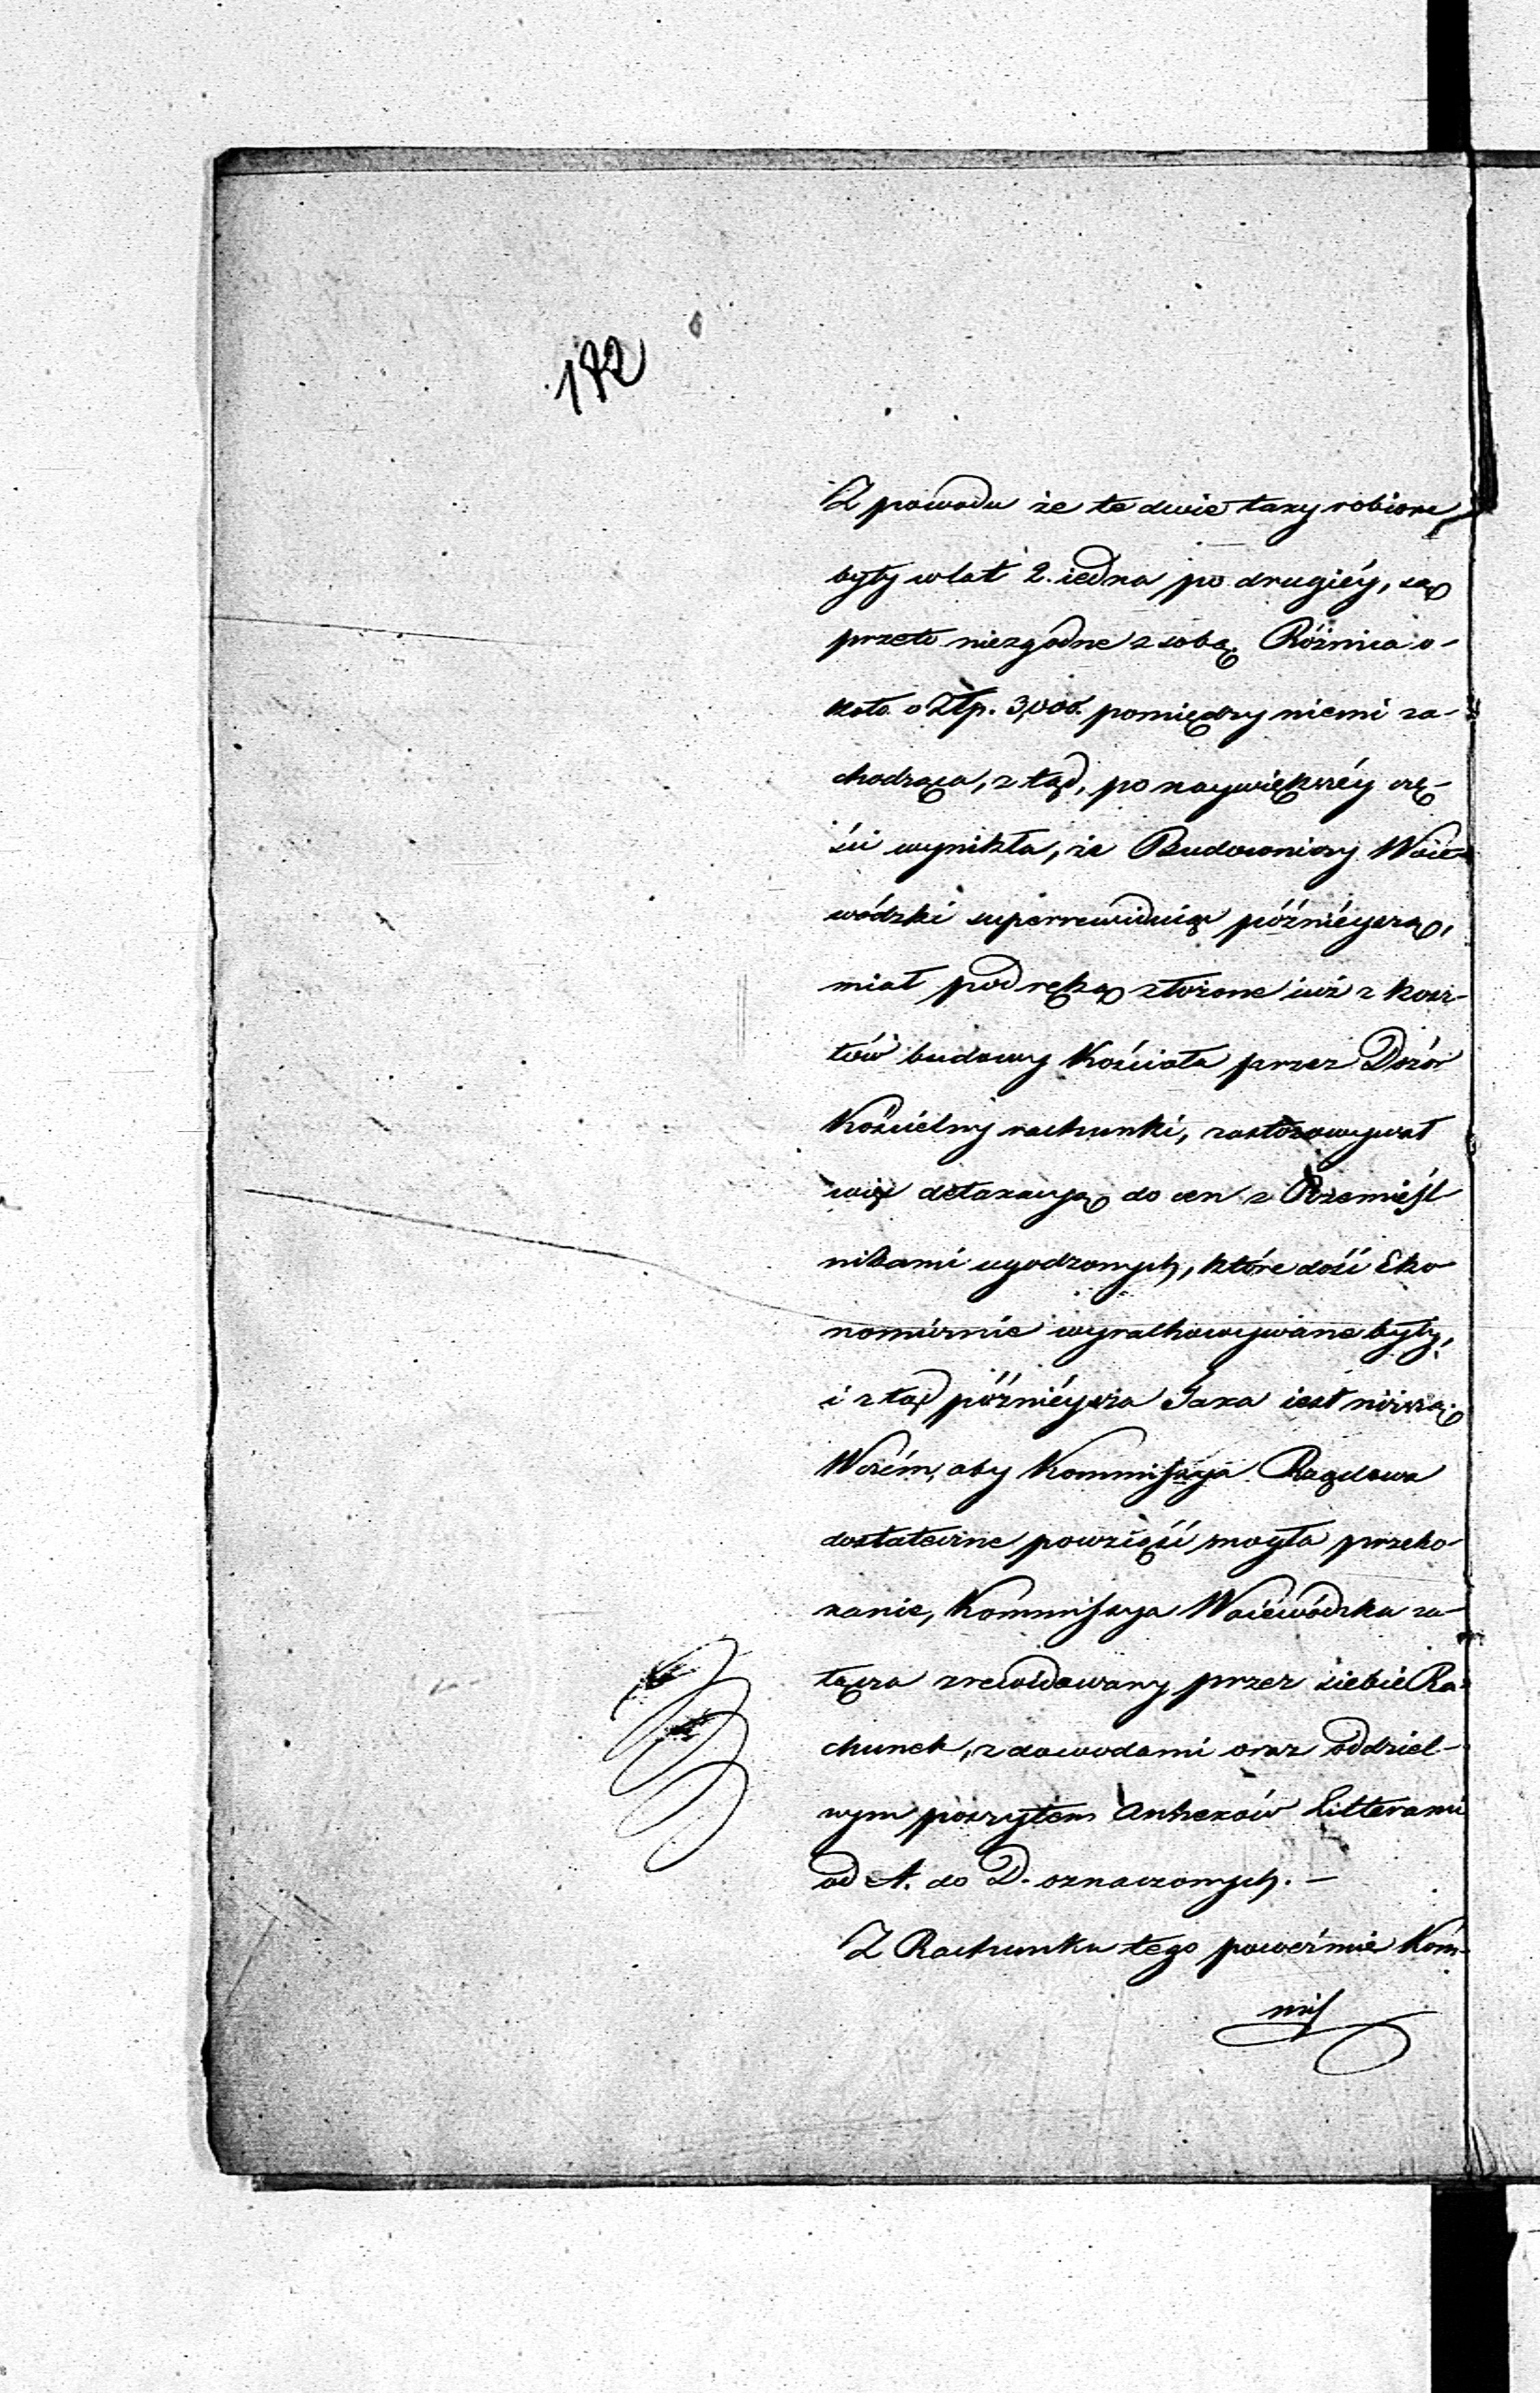 172
Z powodu że te dwie taxy robione
były w lat 2. iedna po drugiéy, są
przeto niezgodne z sobą. Różnica o-
koło o Złp. 3,000. pomiędzy niemi za-
chodząca, z tąd, po naywiększéy czę-
ści wynikła, że Budowniczy Woie-
wódzki superrewiduiąc późniéyszą,
miał pod ręką złożone iuż z kosz-
tów budowy Kościoła przez Dozór
Kościelny rachunki, zastosowywał
więc detaxacyą do cen z Rzemieśl
nikami ugodzonych, które dość Eko
nomicznie wyrachowywane były,
i z tąd późniéysza Taxa iest niższą.
W czém, aby Kommissya Rządowa
dostateczne powziąść mogła przeko-
nanie, Kommissya Woiewódzka za-
łącza zrewidowany przez siebie Ra-
chunek, z dowodami oraz oddziel-
nym poszytem Annexów Litterami
od A. do D. oznaczonych. —
Z Rachunku tego poweźmie Kom-
miss